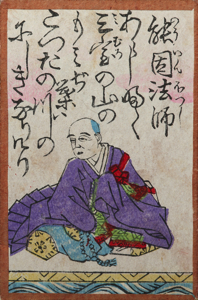 能因法師
あらし吹
三室の山の
もみぢ葉は
たつたの川の
にしきなりけり